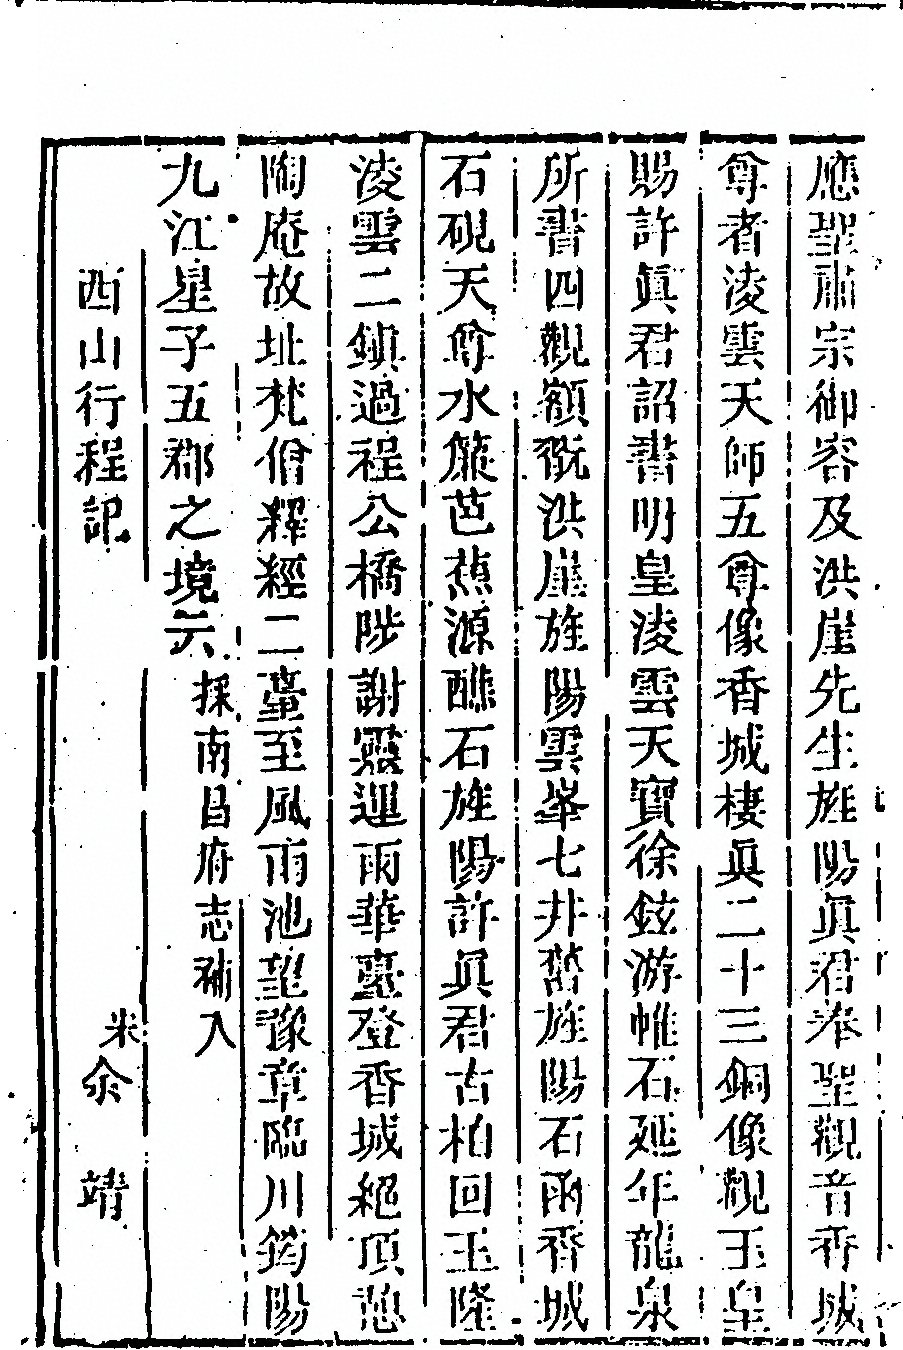 應聖肅宗御容及洪崖先生旌陽眞君奉聖觀音香城
尊者淩雲天師五尊像香城棲眞二十三銅像觀玉皇
賜許眞君詔書明皇淩雲天寶徐鉉游帷石延年龍泉
所書四觀額玩洪崖旌陽雲峯七井醮旌陽石函香城
石硯天尊水簾芭蕉源醮石旌陽許眞君古柏回玉隆
淩雲二鎮過程公橋陟謝靈運雨華臺登香城絕頂憇
陶庵故址梵僧釋經二臺至風雨池望豫章臨川筠陽
九江星子五郡之境云 採南昌府志補入
西山行程記 宋余 靖